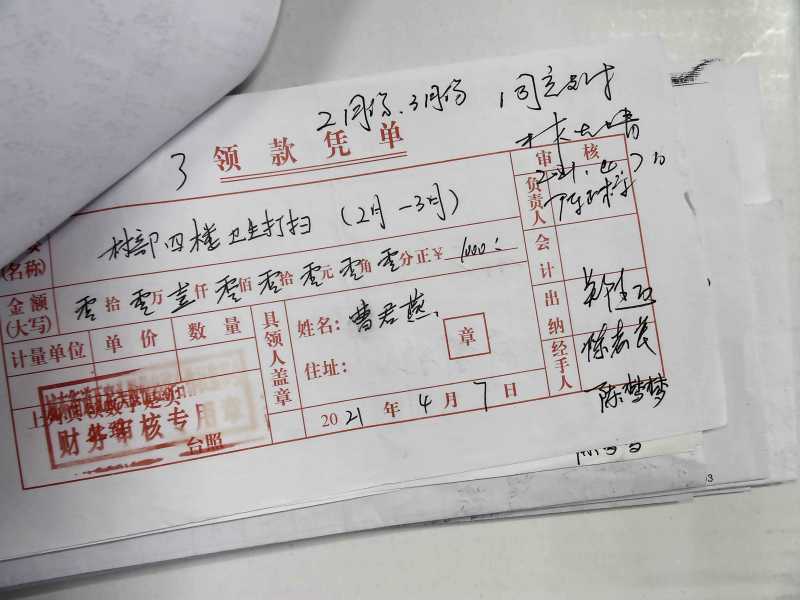 2月份、3月份 同意支付
3 领款凭单
审核
2021.4.7
(名称) 村部四楼卫生打扫（2月-3月） 负责人
金额(大写) 零拾零万壹仟零佰零拾零元零角零分正￥1000: 会计
计量单位 单价 数量 具领人盖章 姓名：曹君燕 章 出纳
住址： 陈志民
经手人 陈梦梦
财务审核专用章
台照
2021年4月7日
3